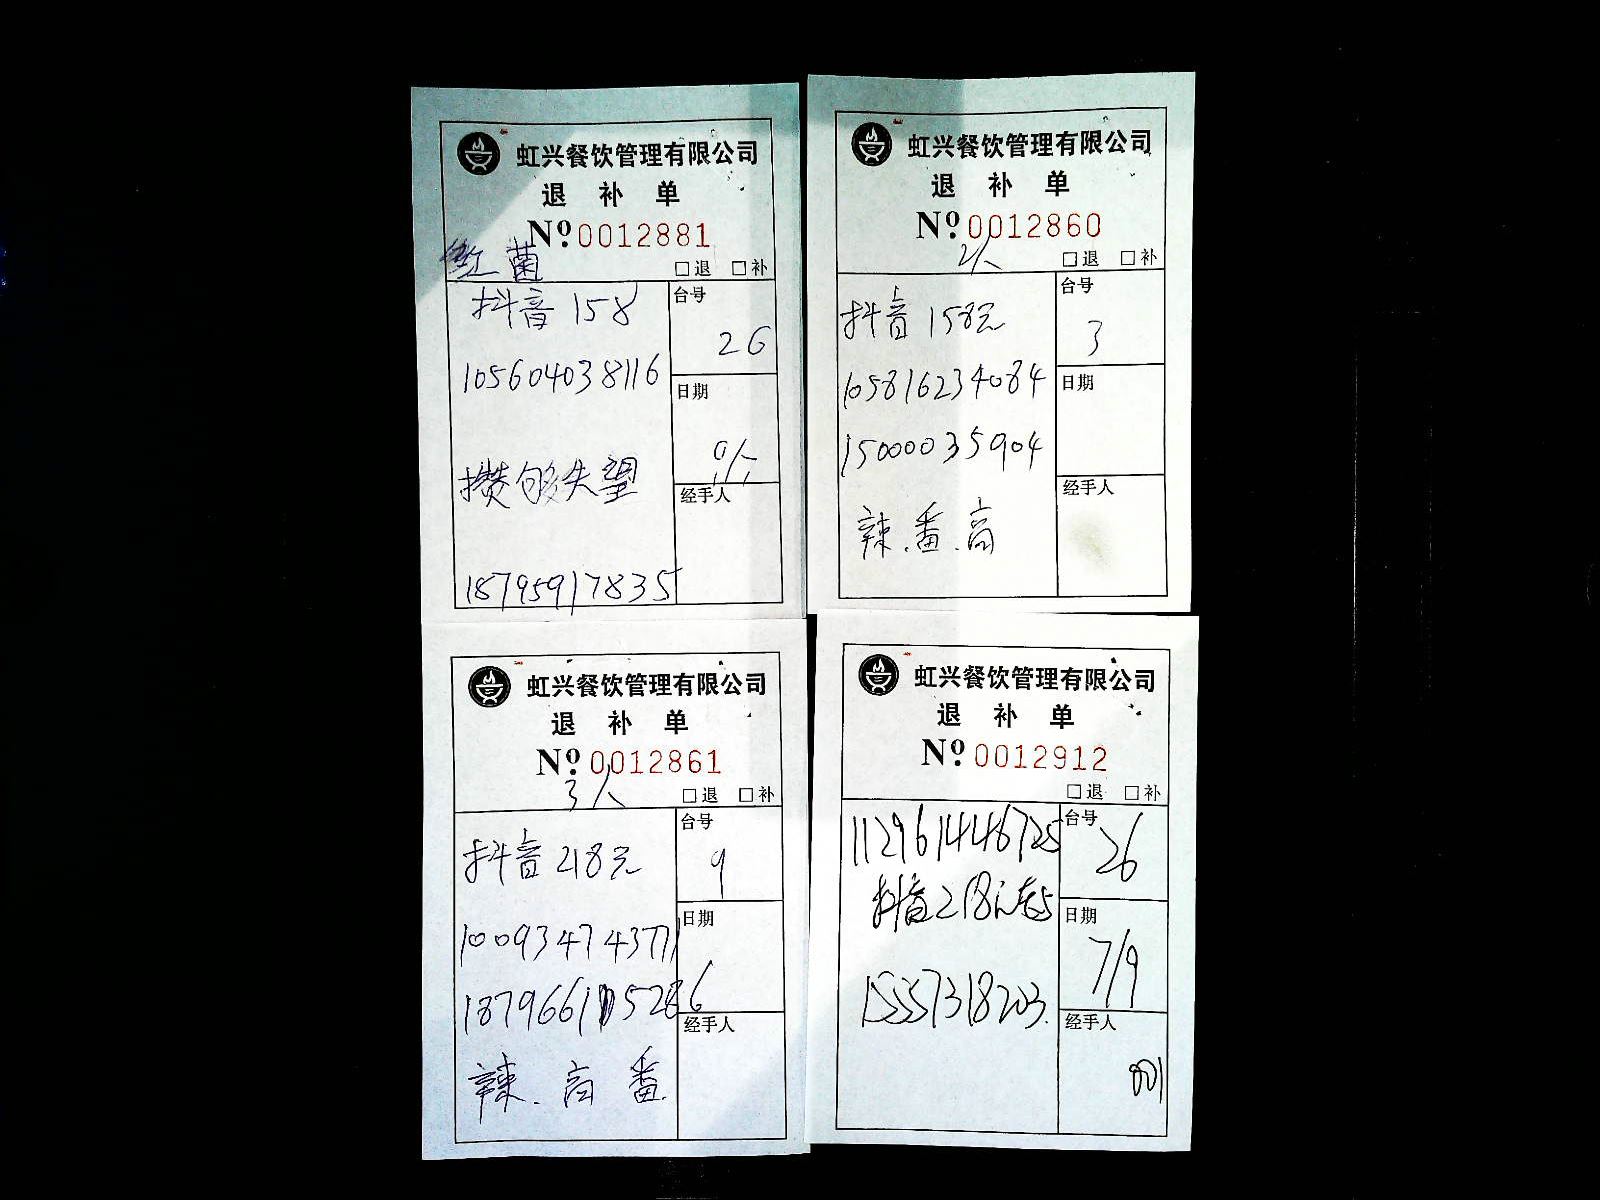 虹兴餐饮管理有限公司
退 补 单
No.0012881
红 菌
□退 □补
抖音 158
台号
26
105604038116
日期
攒够失望
经手人
18795917835
虹兴餐饮管理有限公司
退 补 单
No.0012860
2人
□退 □补
抖音 158元
台号
3
105816234084
日期
15000035904
经手人
辣.番.高
虹兴餐饮管理有限公司
退 补 单
No.0012861
3人
□退 □补
抖音 218元
台号
9
日期
经手人
辣.高 番.
虹兴餐饮管理有限公司
退 补 单
No.0012912
□退 □补
112961446725
台号
26
抖音218元
日期
7/9
15557318203.
经手人